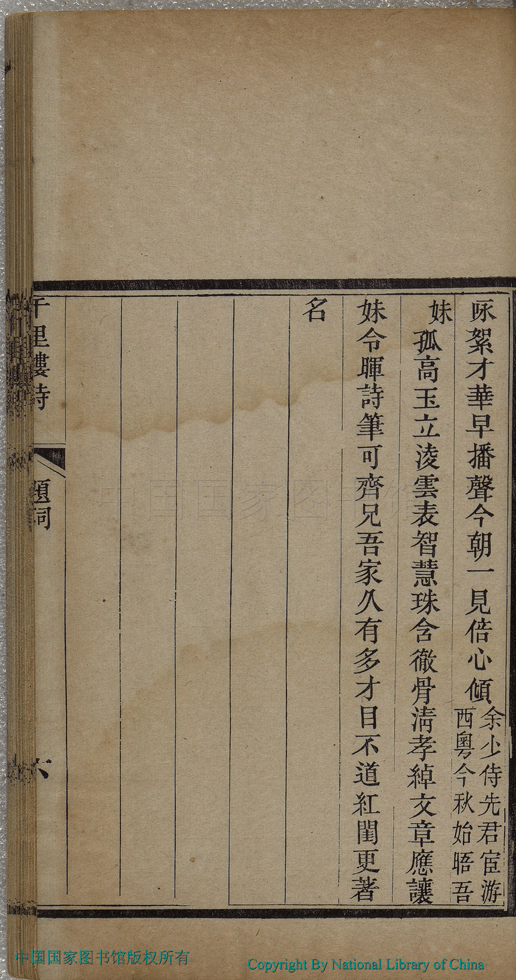 咏絮才華早播聲今朝一見倍心傾余少侍先君宦游西粵今秋始晤吾
妹孤高玉立淩雲表智慧珠含徹骨清孝綽文章應讓
妹令暉詩筆可齊兄吾家久有多才目不道紅閨更著
名
千里樓詩 題詞 六
中国国家图书馆版权所有
Copyright By National Library of China